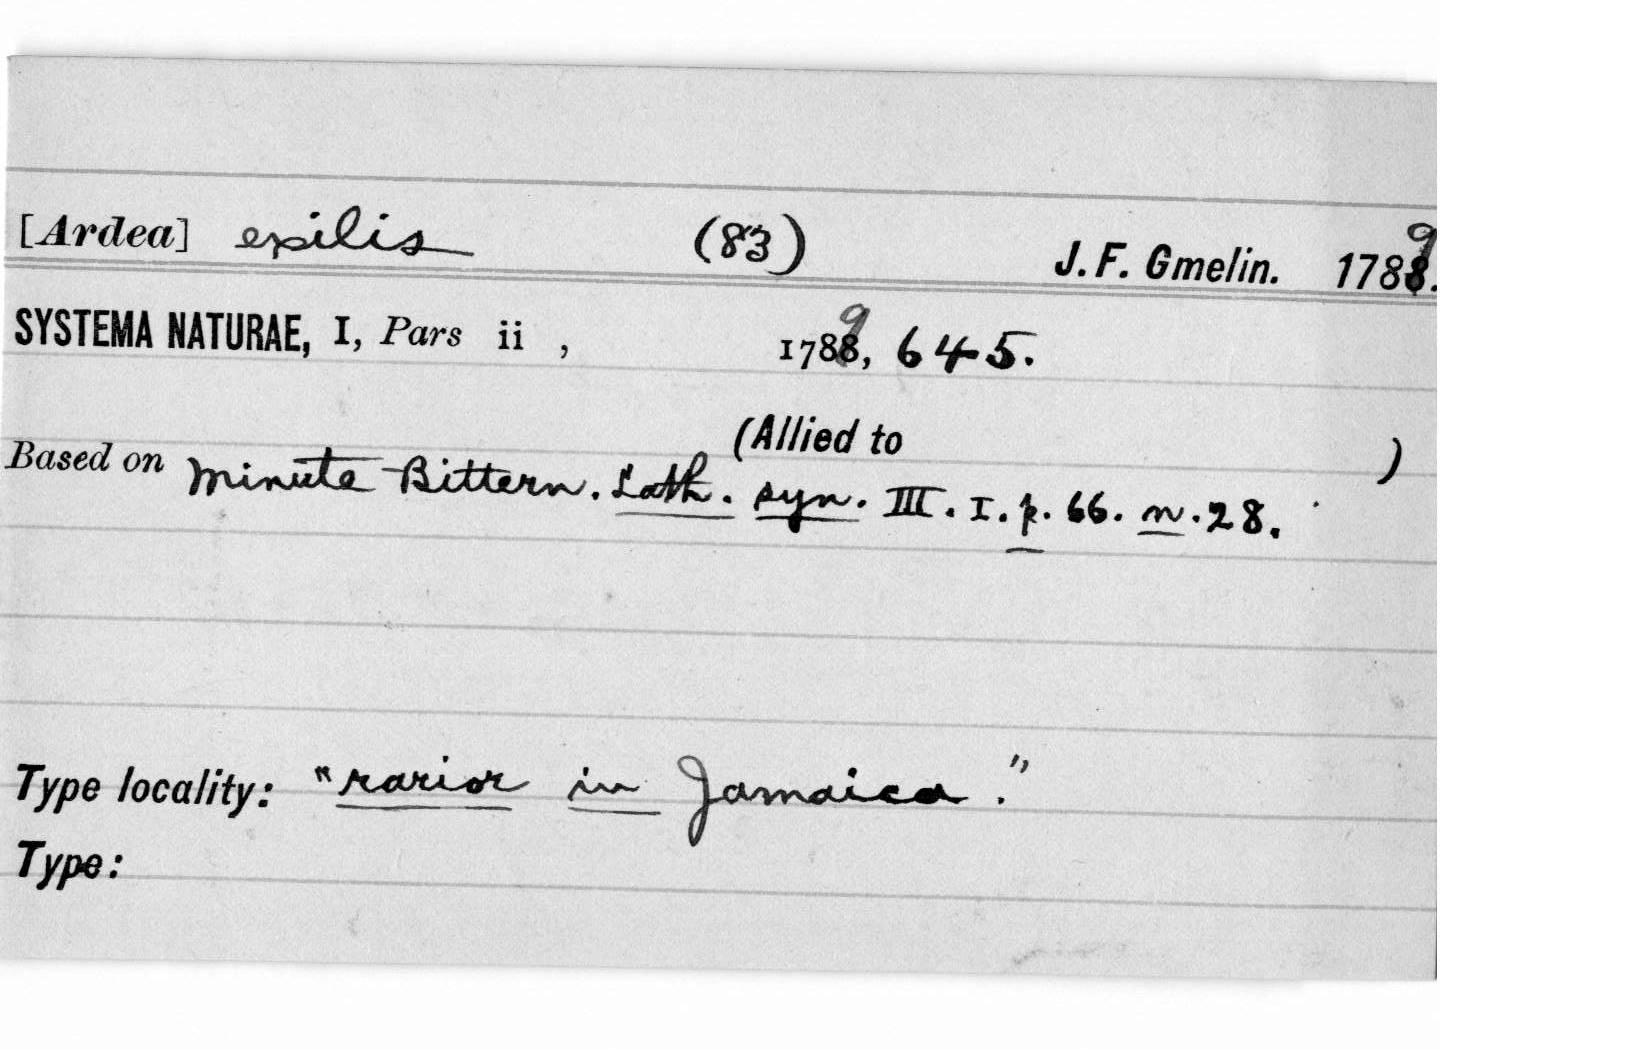 [Ardea] exilis (83) J. F. Gmelin. 1789.
SYSTEMA NATURAE, I, Pars ii , 1789, 645.
(Allied to )
Based on Minute Bittern. Lath. syn. III. I. p. 66. n. 28.
Type locality: "rarior in Jamaica."
Type: